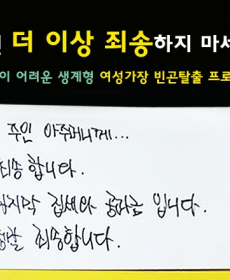 더 이상 죄송하지 마세
이 어려운 생계형 여성가장 빈곤탈출 프로
주인 아주머니께...
죄송합니다.
마지막 집세와 공과금 입니다.
정말 죄송합니다.